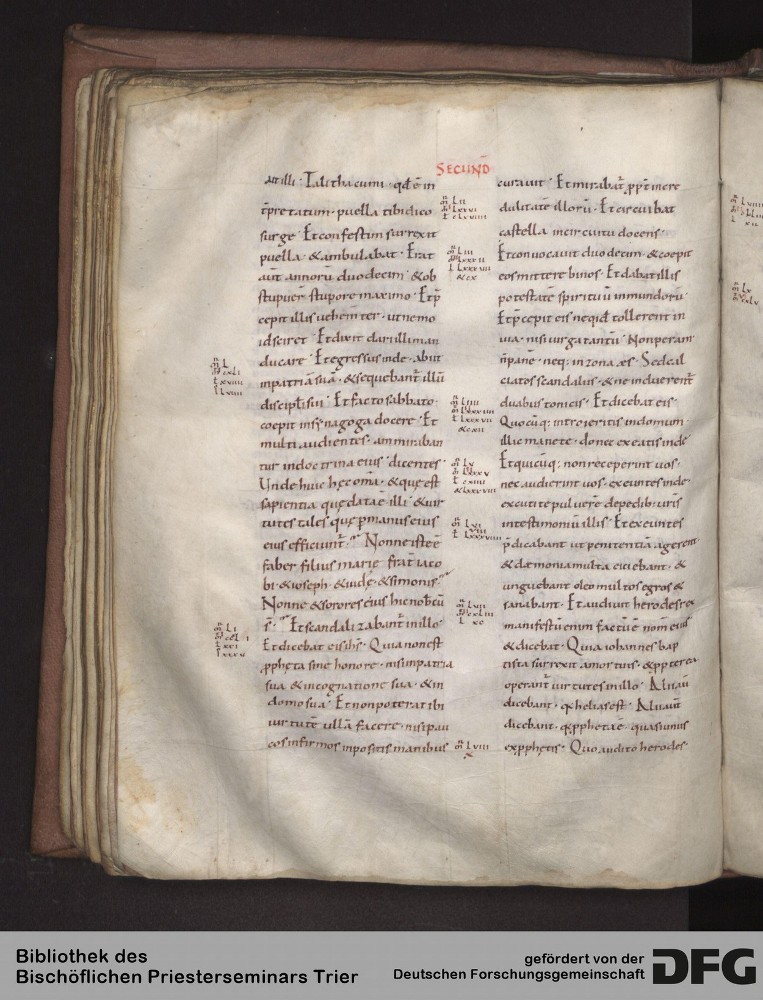 SECUND̄
ait illi · Talitha cumi · qđ ē in
t̄pretatum · puella tibi dico
surge · Et confestim surrexit
puella · & ambulabat · Erat
aut̄ annorū duodecim · & ob
stupuer̄ stupore maximo · Et p̄
cepit illis uehem̄ter · ut nemo
id sciret · Et dixit dari illi man
ducare · Et egressus inde · abiit
in patriā suā · & sequebant̄ illū
discipuli sui · Et facto sabbato ·
coepit in synagoga docere · Et
multi audientes · ammiraban
tur in doctrina eius · dicentes ·
Unde huic hęc om̄a · & quę est
sapientia quę data ē illi · & uir
tutes tales quę p manus eius
efficiunt̄ · Nonne iste ē
faber filius marię frat̄ iaco
bi · & ioseph · & iudę · & simonis ·
Nonne & sorores eius hic nobcū
s̄ · Et scandalizabant̄ in illo ·
Et dicebat eis ihs̄ · Quia non est
ppheta sine honore · nisi in patria
sua & in cognatione sua · & in
domo sua · Et non poterat ibi
uirtutē ullā facere · nisi pau
cos infirmos inpositis manibus
curauit · Et mirabat̄ ppt̄ incre
dulitatē illorū · Et circuibat
castella in circuitu docens ·
Et conuocauit duodecim · & coepit
eos mittere binos · Et dabat illis
potestatē spirituū inmundorū ·
Et p̄cepit eis ne qid tollerent in
uia · nisi uirga tantū · Non peram
n̄ pane · neq; in zona ęs · Sed cal
ciatos scandaliis · & ne induerent̄
duabus tonicis · Et dicebat eis ·
Quocūq; introieritis in domum ·
illic manete · donec exeatis inde
Et quicūq; non receperint uos ·
nec audierint uos · exeuntes inde ·
excutite puluerē de pedib; uris̄
in testimoniū illis · Et exeuntes
p̄dicabant ut penitentiā agerent
& dæmonia multa eiciebant · &
unguebant oleo multos egros &
sanabant · Et audiuit herodes rex
manifestū enim factū ē nom̄ eius
& dicebat · Quia iohannes bap
tista surrexit a mortuis · & ppterea
operant̄ uirtutes in illo · Alii aū
dicebant · q helias est · Alii aut̄
dicebant · q ppheta ē · quasi unus
ex pphetis · Quo audito herodes ·
Bibliothek des
Bischöflichen Priesterseminars Trier
gefördert von der
Deutschen Forschungsgemeinschaft
DFG